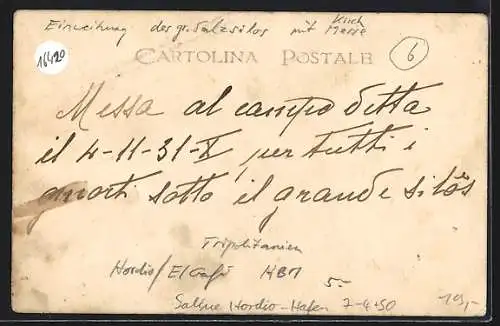 Einweihung des gr. Salzsilos mit Kirch Messe
16420
CARTOLINA POSTALE
6
Messa al campo detta
il 4-11-31-X per tutti i
morti sotto il grande silos
Tripolitanien
HBM
5.-
Saline Hordio-Hafen 7-4-50
19,-